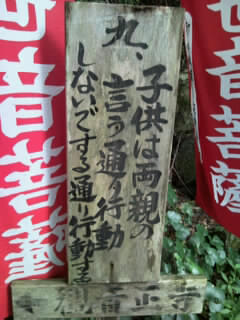 九、子供は両親の
言う通り行動
しないでする通り行動する
世音菩薩
世音菩薩